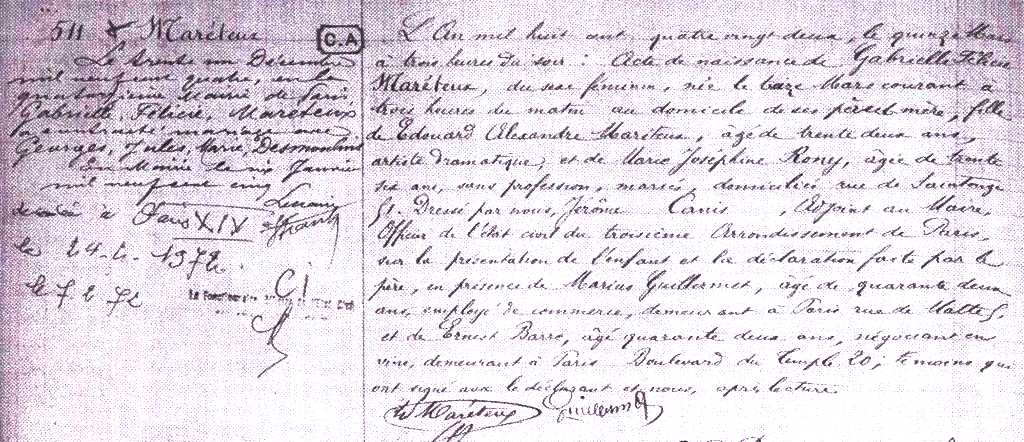 511 Maréteux
C.A
Le trente un Décembre
mil neuf cent quatre, en la
quatorzième Mairie de Paris
Gabrielle, Félicie, Maréteux
a contracté mariage avec
Georges, Jules, Marie, Desmoulins
En Mairie le six Janvier
mil neuf cent cinq
décédée à Paris XIV
le 24-1-1972
le 7 2 72
L'An mil huit cent quatre vingt deux, le quinze Mars
à trois heures du soir : Acte de naissance de Gabrielle Félicie
Maréteux, du sexe féminin, née le treize Mars courant à
trois heures du matin au domicile de ses père et mère, fille
de Edouard Alexandre Maréteux, âgé de trente deux ans,
artiste dramatique, et de Marie Joséphine Rony, âgée de trente
six ans, sans profession, mariés, domiciliés rue de Saintonge
51. Dressé par nous, Jérôme Canis, Adjoint au Maire,
Officier de l'état civil du troisième Arrondissement de Paris,
sur la présentation de l'enfant et la déclaration faite par le
père, en présence de Marius Guillermet, âgé de quarante deux
ans, employé de commerce, demeurant à Paris rue de Malte 5,
et de Ernest Barré, âgé quarante deux ans, négociant en
vins, demeurant à Paris Boulevard du Temple 20; témoins qui
ont signé avec le déclarant et nous, après lecture.
Maréteux Guillermet